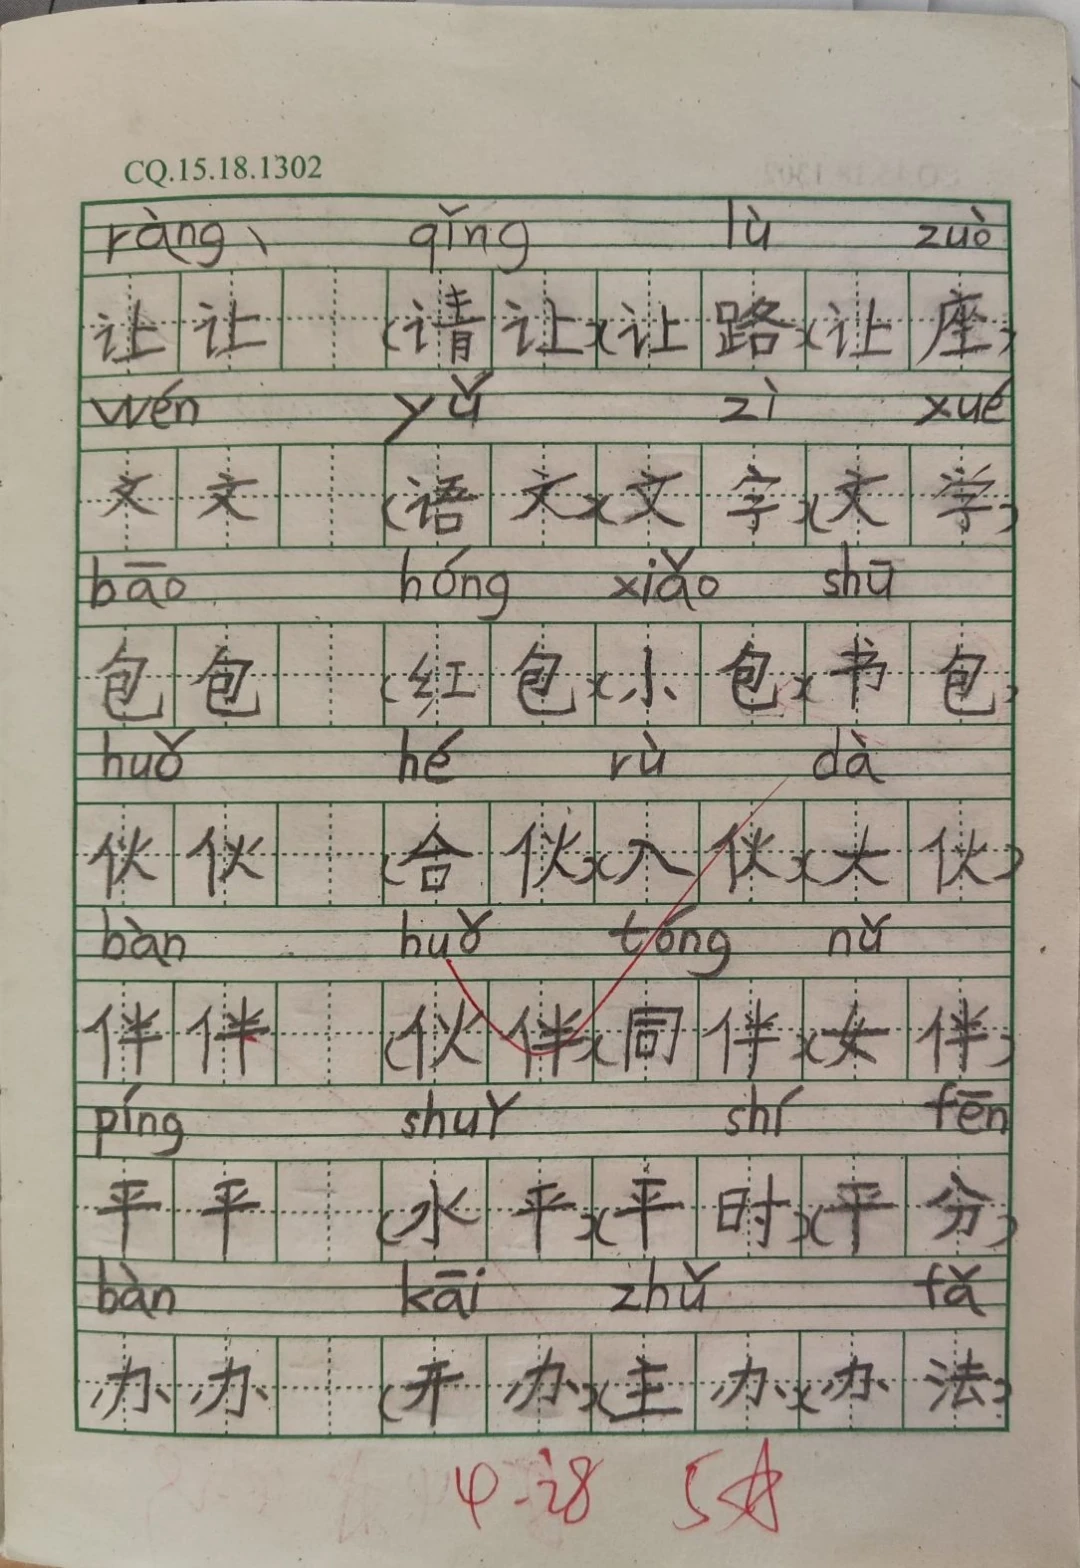 CQ.15.18.1302
ràng、 qǐng lù zuò
让让 (请让)(让路)(让座)
wén yǔ zì xué
文文 (语文)(文字)(文学)
bāo hóng xiǎo shū
包包 (红包)(小包)(书包)
huǒ hé rù dà
伙伙 (合伙)(入伙)(大伙)
bàn huǒ tóng nǚ
伴伴 (伙伴)(同伴)(女伴)
píng shuǐ shí fēn
平平 (水平)(平时)(平分)
bàn kāi zhǔ fǎ
办办 (开办)(主办)(办法)
5☆